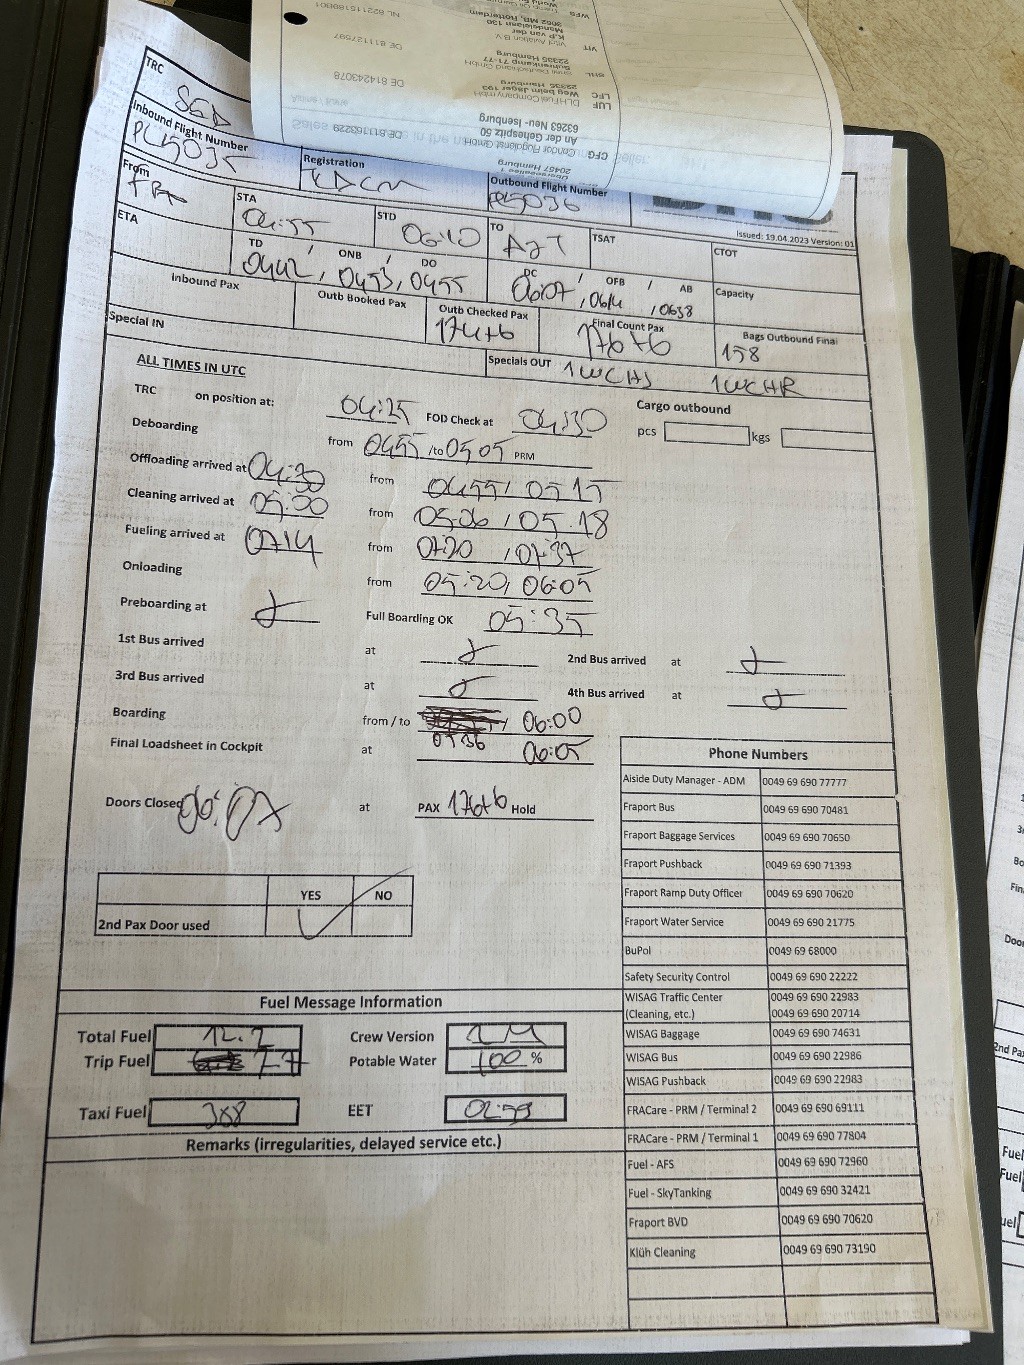 NL 822115189B01
WFS
3062 MB, Rotterdam
Mandeelaan 130
K.P. van der
Vitol Aviation B.V.
VIT
DE 811127597
22335 Hamburg
Suhrenkamp 71-77
Shell Deutschland GmbH
SHL
22335 Hamburg
Weg beim Jäger 193
DLH Fuel Company mbH
LFC
DE 814243078
LUF
63263 Neu- Isenburg
An der Gehespitz 50
Condor Flugdienst GmbH
CFG
20457 Hamburg
TRC
Inbound Flight Number
Registration
Outbound Flight Number
PC5036
Issued: 19.04.2023 Version: 01
From
STA
04:55
STD
06:10
TO
AYT
TSAT
CTOT
ETA
TD / ONB / DO
0442, 0453, 0455
DC / OFB / AB
0607, 0614, 0638
Capacity
Inbound Pax
Outb Booked Pax
Outb Checked Pax
174+6
Final Count Pax
176+6
Bags Outbound Final
158
Special IN
Specials OUT 1WCHS 1WCHR
ALL TIMES IN UTC
TRC on position at: 04:25 FOD Check at 04:30
Cargo outbound
pcs kgs
Deboarding from 0455 /to 0505 PRM
Offloading arrived at 04:30 from 0455 / 0515
Cleaning arrived at 05:00 from 05:06 / 05:18
Fueling arrived at 0714 from 0720 / 0737
Onloading from 05:20, 06:05
Preboarding at Full Boarding OK 05:35
1st Bus arrived at 2nd Bus arrived at
3rd Bus arrived at 4th Bus arrived at
Boarding from / to 0536 / 06:00
Final Loadsheet in Cockpit at 06:05
Doors Closed 06:07 at PAX 176+6 Hold
YES NO
2nd Pax Door used
Phone Numbers
Aiside Duty Manager - ADM 0049 69 690 77777
Fraport Bus 0049 69 690 70481
Fraport Baggage Services 0049 69 690 70650
Fraport Pushback 0049 69 690 71393
Fraport Ramp Duty Officer 0049 69 690 70620
Fraport Water Service 0049 69 690 21775
BuPol 0049 69 68000
Safety Security Control 0049 69 690 22222
WISAG Traffic Center 0049 69 690 22983
(Cleaning, etc.) 0049 69 690 20714
WISAG Baggage 0049 69 690 74631
WISAG Bus 0049 69 690 22986
WISAG Pushback 0049 69 690 22983
FRACare - PRM / Terminal 2 0049 69 690 69111
FRACare - PRM / Terminal 1 0049 69 690 77804
Fuel - AFS 0049 69 690 72960
Fuel - SkyTanking 0049 69 690 32421
Fraport BVD 0049 69 690 70620
Klüh Cleaning 0049 69 690 73190
Fuel Message Information
Total Fuel 12.2 Crew Version
Trip Fuel 7.7 Potable Water 100 %
Taxi Fuel 368 EET 02:59
Remarks (irregularities, delayed service etc.)